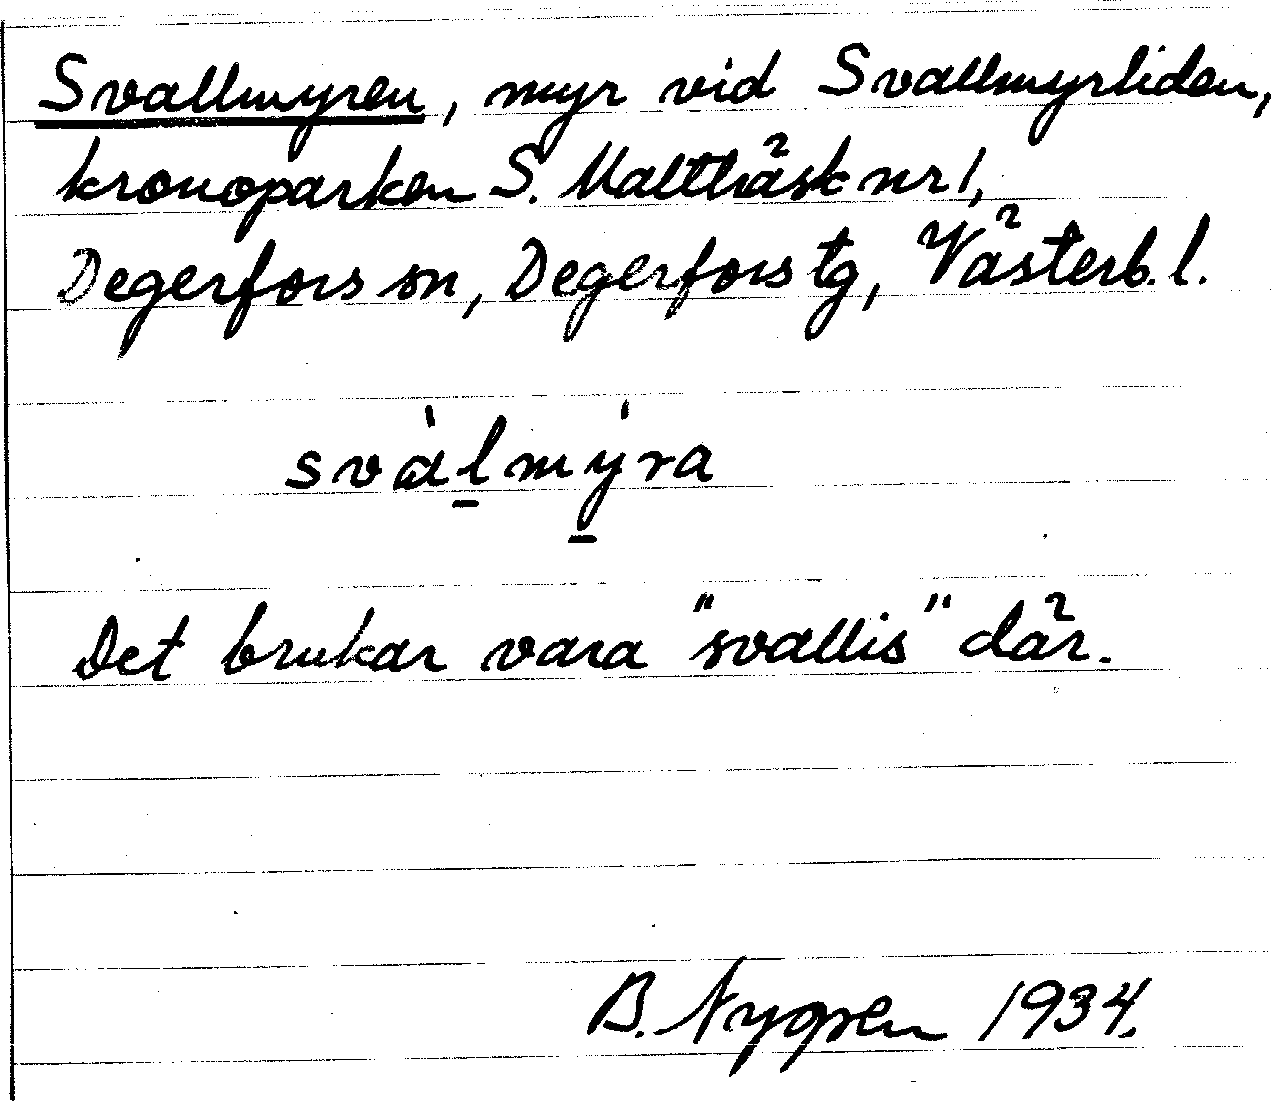 Svallmyren, myr vid Svallmyrliden,
kronoparken S. Malträsk nr 1,
Degerfors sn, Degerfors tg, Västerb. l.
svàl̲mý̲ra
Det brukar vara "svallis" där.
B. Nygren 1934.